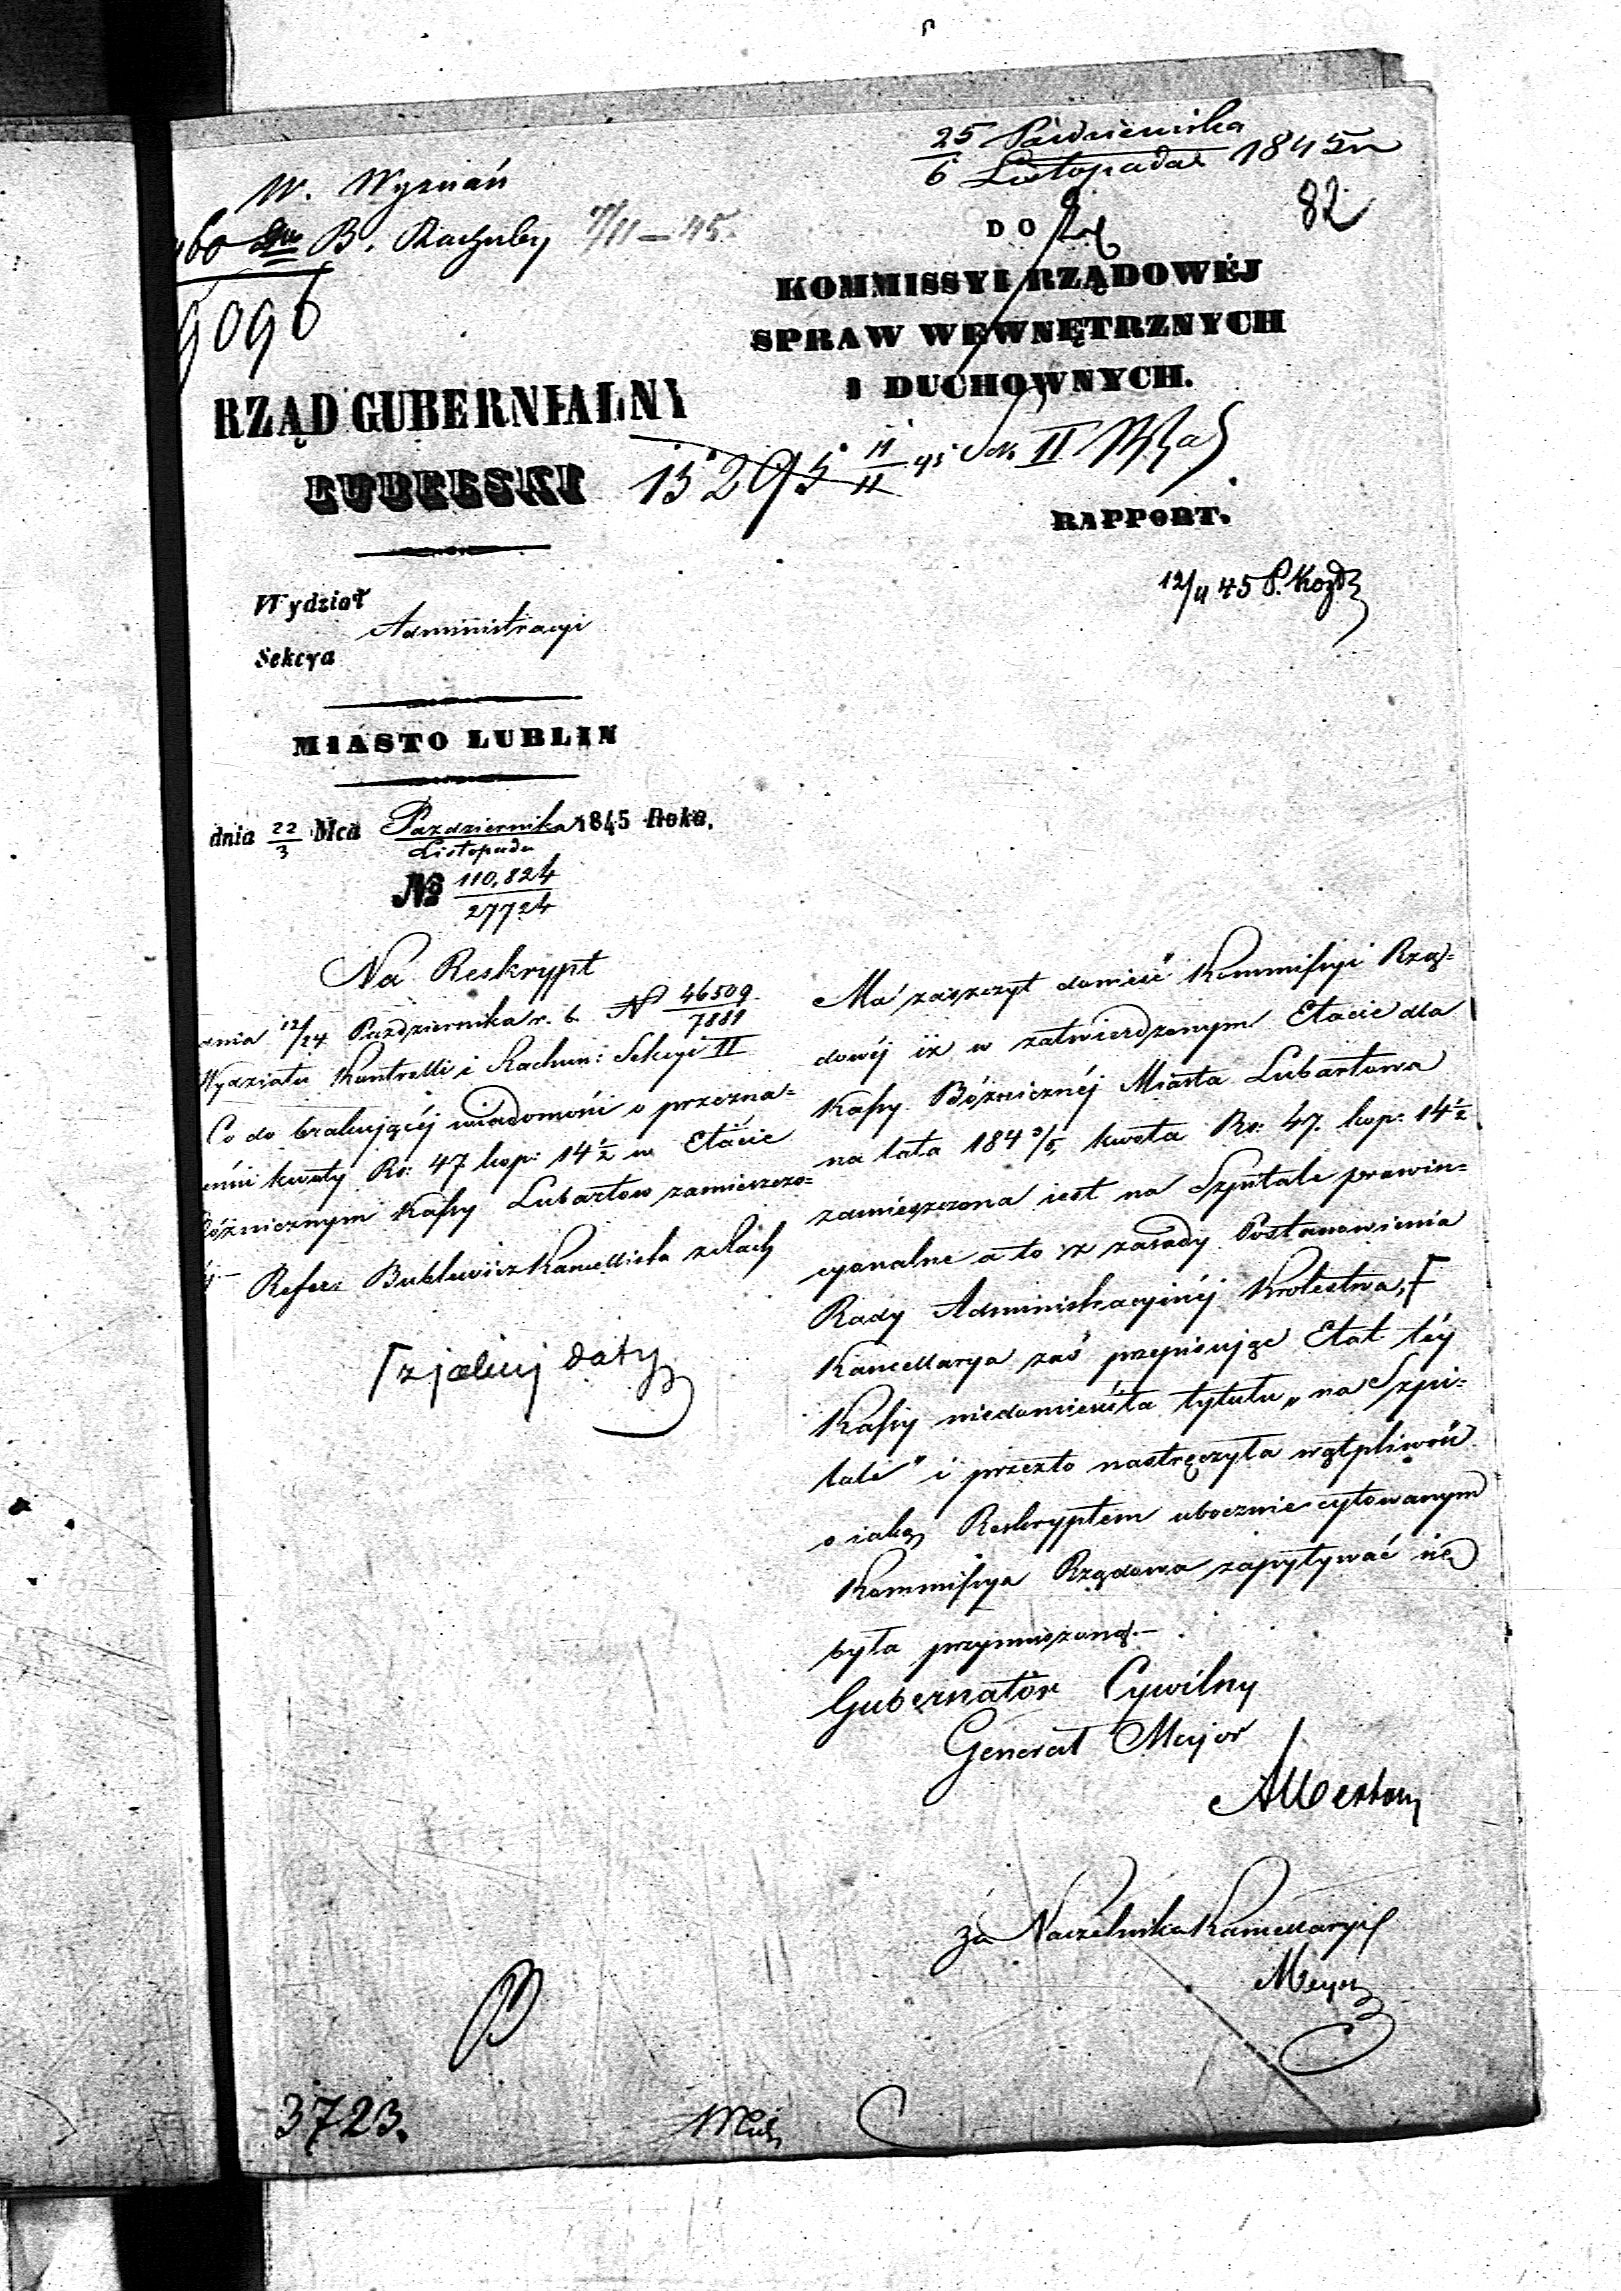 25 Pazdziernika
6 Listopada 1845 r
82
W. Wyznań
B. Rachuby 7/11 – 45.
9096
DO
KOMMISSYI RZĄDOWÉJ
SPRAW WEWNĘTRZNYCH
I DUCHOWNYCH.
RZĄD GUBERNIALNY
LUBELSKI
15295 11/11 45 II
RAPPORT.
12/11 45
Wydział
Administracyi
Sekcya
MIASTO LUBLIN
dnia 22/3 Mca Pazdziernika/Listopada 1845 Roku.
№ 110,824/27724
Na Reskrypt
dnia 12/24 Października r. b. N 46509/7881
Wydziału Kontrolli i Rachun: Sekcyi II
Co do brakującéj wiadomości o przezna-
kwoty Rs: 47 kop: 14½ w Etacie
Bóżnicznym Kassy Lubartow zamieszczo-
Refer: Kancellista
z jakiej daty
Ma zaszczyt donieść Kommissyi Rzą-
dowéj iż w zatwierdzonym Etacie dla
Kassy Bóżnicznéj Miasta Lubartowa
na lata 184 3/5, kwota Rs: 47. kop: 14½
zamieszczona iest na Szpitale prowin-
cyonalne a to z zasady Postanowienia
Rady Administracyinéj Krolestwa,
Kancellarya zaś przepisując Etat téy
Kassy niedomieściła tytułu „na Szpi-
tale" i przezto nastręczyła wątpliwość
o iaką Reskryptem ubocznie cytowanym
Kommissya Rządowa zapytywać się
była przymuszoną.–
Gubernator Cywilny
Generał Major
Albertow
za Naczelnika Kancellaryi
3723.